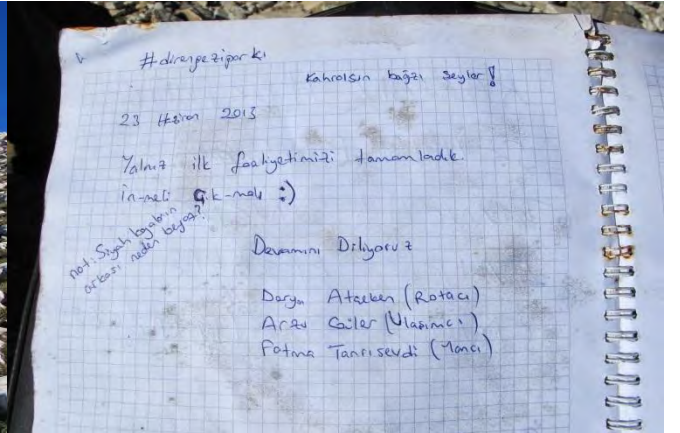 #direngeziparkı
Kahrolsun bağzı şeyler!
23 Haziran 2013
Yalnız ilk faaliyetimizi tamamladık.
İn-meli Çık-malı :)
not: Siyah bayabrın
arkası neden beyaz?
Devamını Diliyoruz
Derya (Rotacı)
Arzu (Ulaşımcı)
Fatma Tanrısevdi (Yancı)